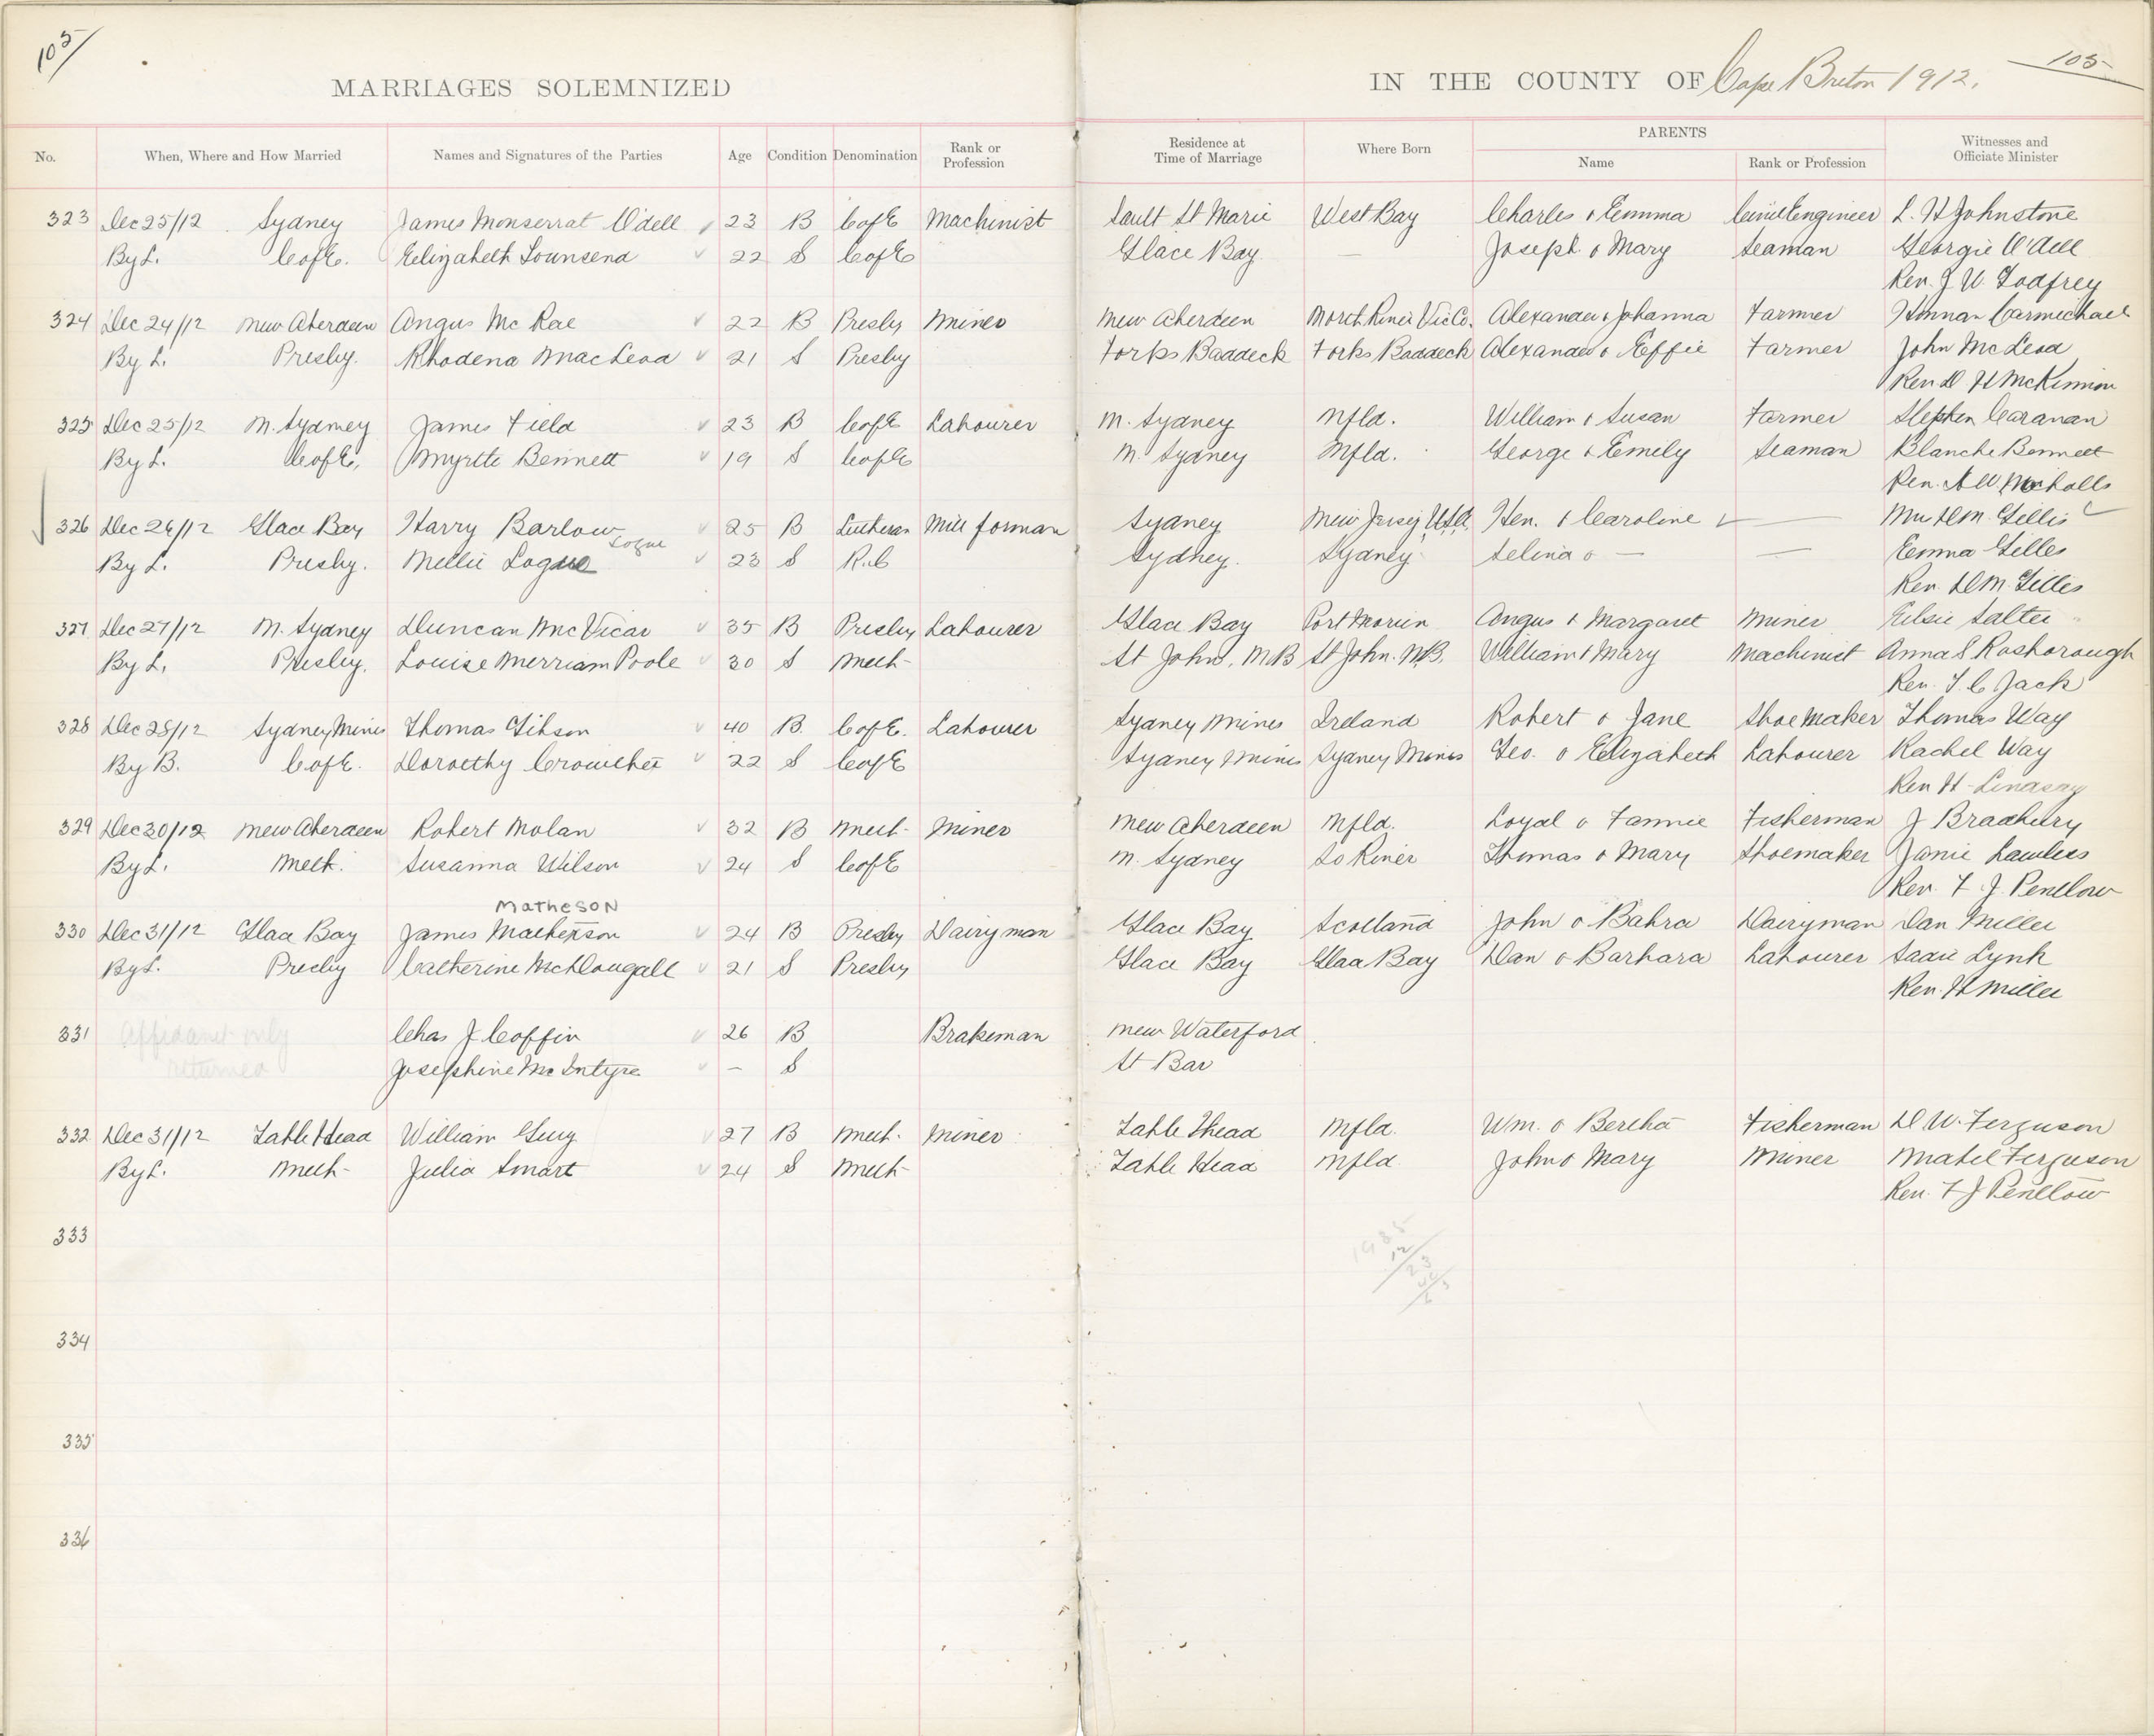 105
105
MARRIAGES SOLEMNIZED
IN THE COUNTY OF Cape Breton 1912.
No. When, Where and How Married Names and Signatures of the Parties Age Condition Denomination Rank or Profession Residence at Time of Marriage Where Born PARENTS Name Rank or Profession Witnesses and Officiate Minister
323 Dec 25/12 Sydney James Monserrat Odell 23 B C of E Machinist Sault St Marie West Bay Charles & Emma Civil Engineer L. H Johnstone
By L. C of E. Elizabeth Townsend 22 S C of E Glace Bay — Joseph & Mary Seaman Georgie O'Dell
Rev. J. W. Godfrey
324 Dec 24/12 New Aberdeen Angus McRae 22 B Presby Miner New Aberdeen North River Vic Co. Alexander & Johanna Farmer Carmichael
By L. Presby. Rhodena MacLeod 21 S Presby Forks Baddeck Forks Baddeck Alexander & Effie Farmer John McLeod
Rev D H McKinnon
325 Dec 25/12 N. Sydney James Field 23 B C of E Labourer N. Sydney Nfld. William & Susan Farmer Stephen Caravan
By L. C of E, Myrtle Bennett 19 S C of E N. Sydney Nfld. George & Emily Seaman Blanche Bennett
Rev. A W Nicholls
326 Dec 26/12 Glace Bay Harry Barlow 25 B Lutheran Mill forman Sydney New Jersey U.S.A. Hen. & Caroline — D.M. Gillis
Logue
By L. Presby. Nellie Logue 23 S R.C Sydney. Sydney Selina & — — Emma Gilles
Rev. D.M. Gillis
327 Dec 27/12 N. Sydney Duncan McVicar 35 B Presby Labourer Glace Bay Port Morien Angus & Margaret Miner Elsie Salter
By L. Presby. Louise Merriam Poole 30 S Meth St John, N.B St John. N.B. William & Mary Machinist Anna S Rosborough
Rev. T. C Jack
328 Dec 28/12 Sydney Mines Thomas Gibson 40 B. C of E. Labourer Sydney Mines Ireland Robert & Jane Shoe Maker Thomas Way
By B. C of E. Dorothy Croucher 22 S C of E Sydney Mines Sydney Mines Geo. & Elizabeth Labourer Rachel Way
Rev H. Lindsay
329 Dec 30/12 New Aberdeen Robert Nolan 32 B Meth. Miner New Aberdeen Nfld. Loyal & Fannie Fisherman J Bradbury
By L. Meth. Susanna Wilson 24 S C of E N. Sydney So River Thomas & Mary Shoemaker Janie Lawless
Rev. F. J. Pentlow
Matheson
330 Dec 31/12 Glace Bay James Matherson 24 B Presby Dairyman Glace Bay Scotland John & Babra Dairyman Dan Miller
By L. Presby Catherine McDougall 21 S Presby Glace Bay Glace Bay Dan & Barbara Labourer Sadie Lynk
Rev. H Miller
331 Affidavit only Chas J Coffin 26 B Brakeman New Waterford
returned Josephine McIntyre — S St Bar
332 Dec 31/12 Table Head William Guy 27 B Meth. Miner Table Head Nfld. Wm. & Bertha Fisherman D W. Ferguson
By L. Meth Julia Smart 24 S Meth Table Head Nfld John & Mary Miner Mabel Ferguson
Rev. F J Pentlow
333
334
335
336